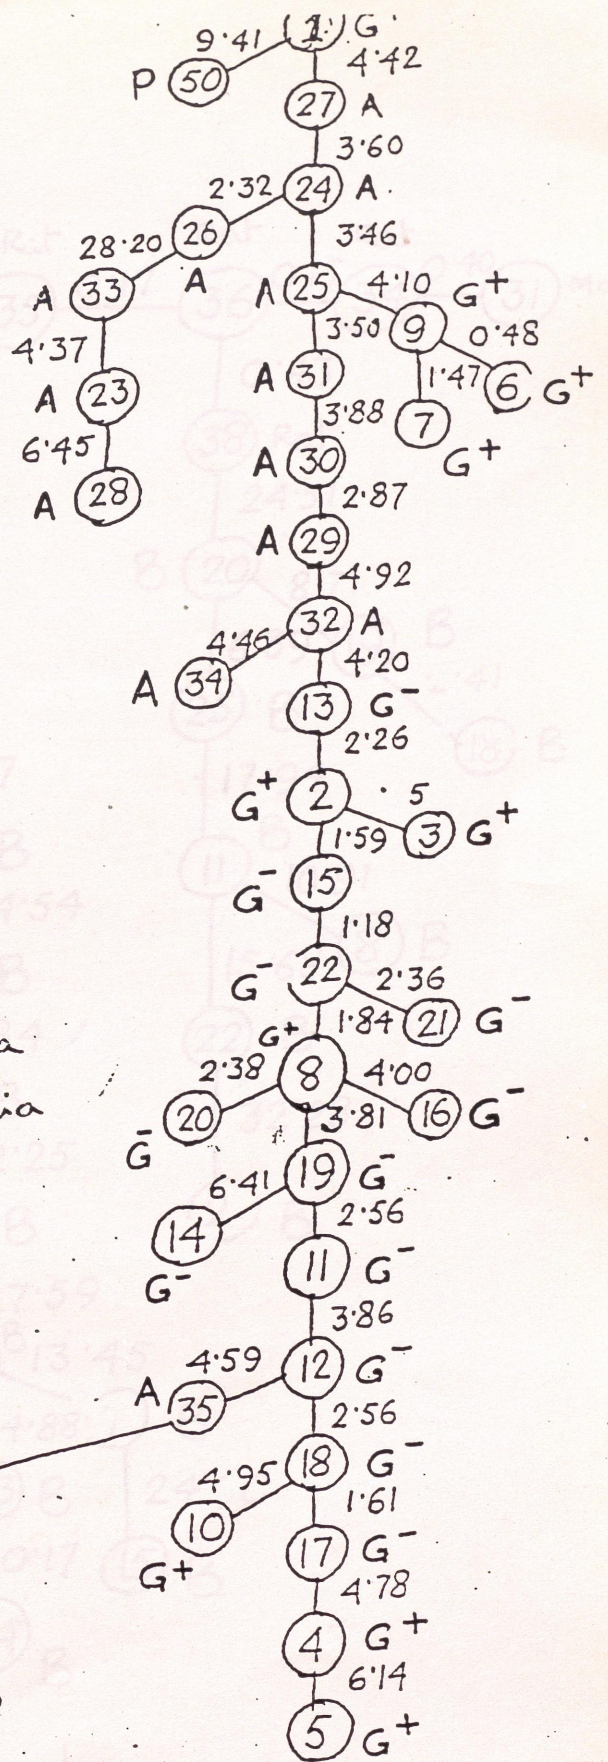 9·41 1 G·
P 50 4·42
27 A
3·60
2·32 24 A.
28·20 26 3·46
A 33 A A 25 4·10 G+
4·37 3·50 9 0·48
A 23 A 31 1·47 6 G+
6·45 3·88 7
A 28 A 30 G+
2·87
A 29
4·92
32 A
4·46 4·20
A 34 13 G-
2·26
G+ 2 · 5
1·59 3 G+
G- 15
1·18
G- 22 2·36
G+ 1·84 21 G-
2·38 8 4·00
20 3·81 16 G-
G- 19 G-
6·41 2·56
14 11 G-
G- 3·86
4·59 12 G-
A 35 2·56
18 G-
4·95 1·61
10 17 G-
G+ 4·78
4 G+
6·14
5 G+